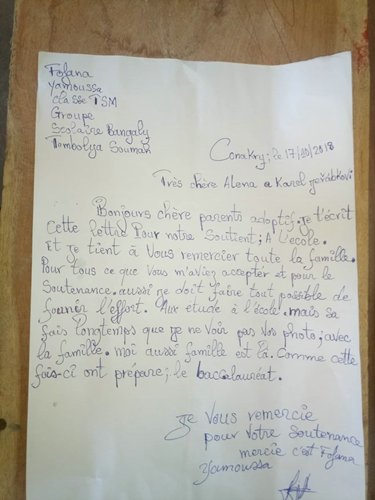 Fofana
Yamoussa
classe TSM
Groupe
Scolaire Bangaly
Tombolya Soumah
Conakry; le 17/10/2018
Très chère Alena a Karel jeřábkovi
Bonjours chère parents adoptifs. je t'ècrit
Cette lettre Pour notre Soutient; A l'ecole.
Et je tient à Vous remercier toute la famille.
Pour tous ce que Vous m'aviez accepter et pour le
Soutenance. aussi ne doit faire tout possible de
founir l'effort. Aux etude à l'école. mais sa
fais longtemps que je ne Voir pas Vos photo; avec
la famille. moi aussi famille est là. Comme cette
fois-ci ont prépare; le baccalauréat.
je Vous remercie
pour Votre Soutenance
mercie c'est Fofana
Yamoussa